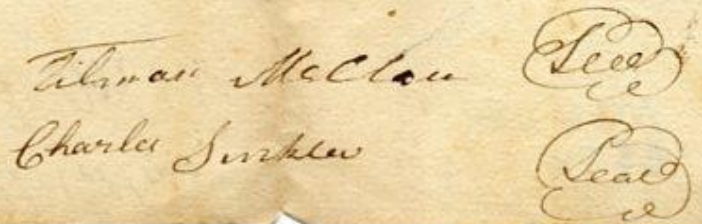 Tilman McClain Seal
Charles Sinkler Seal